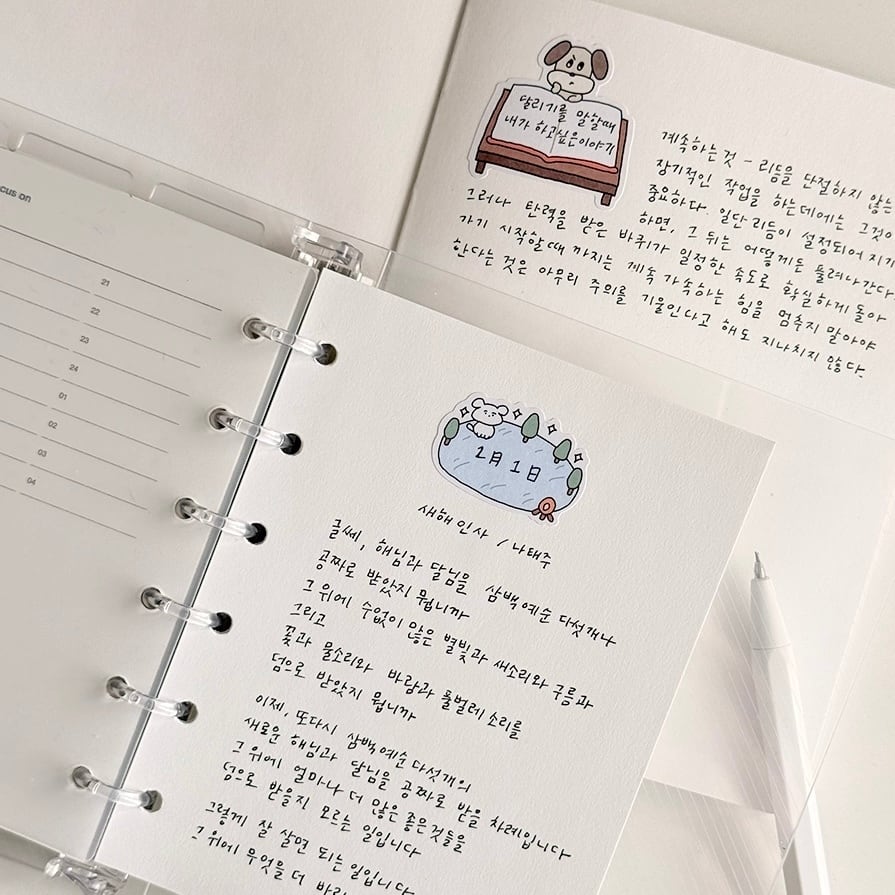 cus on
21
22
23
24
01
02
03
04
달리기를 말할때
내가 하고싶은이야기
계속하는것 - 리듬을 단절하지 않는
장기적인 작업을 하는데에는 그것이
중요하다. 일단 리듬이 설정되어 지기
그러나 탄력을 받은 하면, 그 뒤는 어떻게든 풀려나간다
가기 시작할때 까지는 바퀴가 일정한 속도로 확실하게 돌아
한다는 것은 아무리 계속 가속하는 힘을 멈추지 말아야
주의를 기울인다고 해도 지나치지 않다.
2月 1日
새해인사 / 나태주
글쎄, 해님과 달님을 삼백예순 다섯개나
공짜로 받았지 뭡니까
그 위에 수없이 많은 별빛과 새소리와 구름과
그리고
꽃과 물소리와 바람과 풀벌레 소리를
덤으로 받았지 뭡니까
이제, 또다시 삼백예순다섯개의
새로운 해님과 달님을 공짜로 받을 차례입니다
그 위에 얼마나 더 많은 좋은것들을
덤으로 받을지 모르는 일입니다
그렇게 잘 살면 되는 일입니다
그 위에 무엇을 더